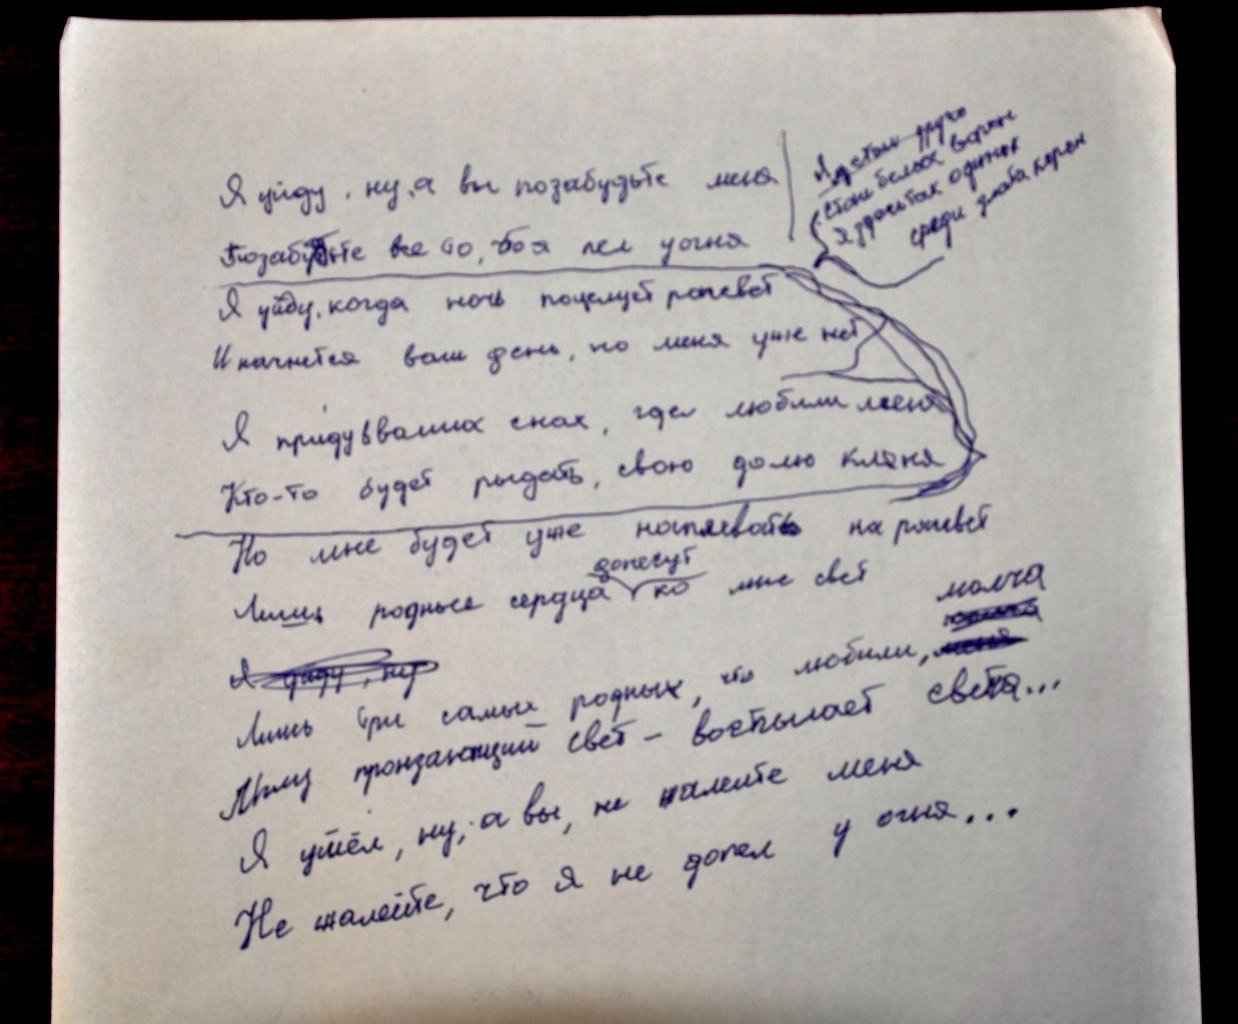 Я уйду, ну, а вы позабудьте меня
Позабудьте все то, что я пел у огня
Я уйду, когда ночь поцелует рассвет
И начнется ваш день, но меня уже нет
Я приду в ваших снах, где любили меня
Кто-то будет рыдать, свою долю кляня
Но мне будет уже наплевать на рассвет
Лишь родные сердца донесут ко мне свет
Я уйду, ну
Лишь три самых родных, что любили, молча
меня
пронзающий свет - воспылает свеча...
Я ушёл, ну, а вы, не жалейте меня
Не жалейте, что я не допел у огня...
Я
стаи белых ворон
Я здесь так одинок
среди злата корон